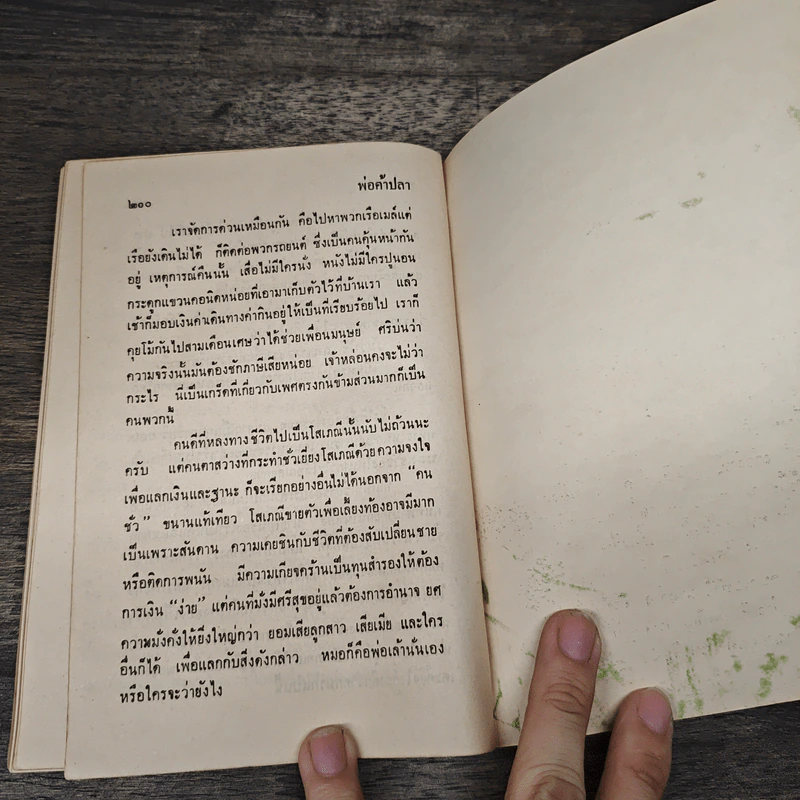 ๒๐๐
พ่อค้าปลา
เราจัดการด่วนเหมือนกัน คือไปหาพวกเรือเมล์แต่
เรือยังเดินไม่ได้ ก็ติดต่อพวกรถยนต์ ซึ่งเป็นคนคุ้นหน้ากัน
อยู่ เหตุการณ์คืนนั้น เสื่อไม่มีใครนั่ง หนังไม่มีใครปูนอน
กระดูกแขวนคอนิดหน่อยที่เอามาเก็บตัวไว้ที่บ้านเรา แล้ว
เช้าก็มอบเงินค่าเดินทางค่ากินอยู่ให้เป็นที่เรียบร้อยไป เราก็
คุยโม้กันไปสามเดือนเศษว่าได้ช่วยเพื่อนมนุษย์ ศรีบ่นว่า
ความจริงนั้นมันต้องชักภาษีเสียหน่อย เจ้าหล่อนคงจะไม่ว่า
กระไร นี่เป็นเกร็ดที่เกี่ยวกับเพศตรงกันข้ามส่วนมากก็เป็น
คนพวกนี้
คนดีที่หลงทางชีวิตไปเป็นโสเภณีนั้นนับไม่ถ้วนนะ
ครับ แต่คนตาสว่างที่กระทำชั่วเยี่ยงโสเภณีด้วยความจงใจ
เพื่อแลกเงินและฐานะ ก็จะเรียกอย่างอื่นไม่ได้นอกจาก “คน
ชั่ว” ขนานแท้เทียว โสเภณีขายตัวเพื่อเลี้ยงท้องอาจมีมาก
เป็นเพราะสันดาน ความเคยชินกับชีวิตที่ต้องสับเปลี่ยนชาย
หรือติดการพนัน มีความเกียจคร้านเป็นทุนสำรองให้ต้อง
การเงิน “ง่าย” แต่คนที่มั่งมีศรีสุขอยู่แล้วต้องการอำนาจ ยศ
ความมั่งคั่งให้ยิ่งใหญ่กว่า ยอมเสียลูกสาว เสียเมีย และใคร
อื่นก็ได้ เพื่อแลกกับสิ่งดังกล่าว หมอก็คือพ่อเล้านั่นเอง
หรือใครจะว่ายังไง